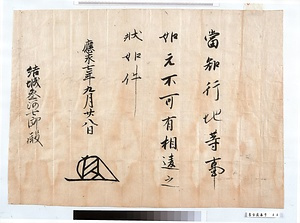 當知行地等事
如元不可有相違之
状如件
應永七年九月廿八日
結城参河七郎殿